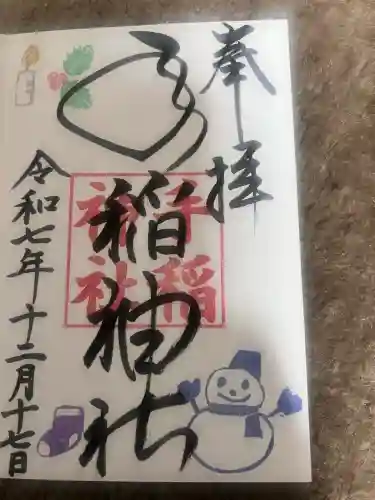 奉拝
手稲神社
手稲
神社
令和七年十二月十七日